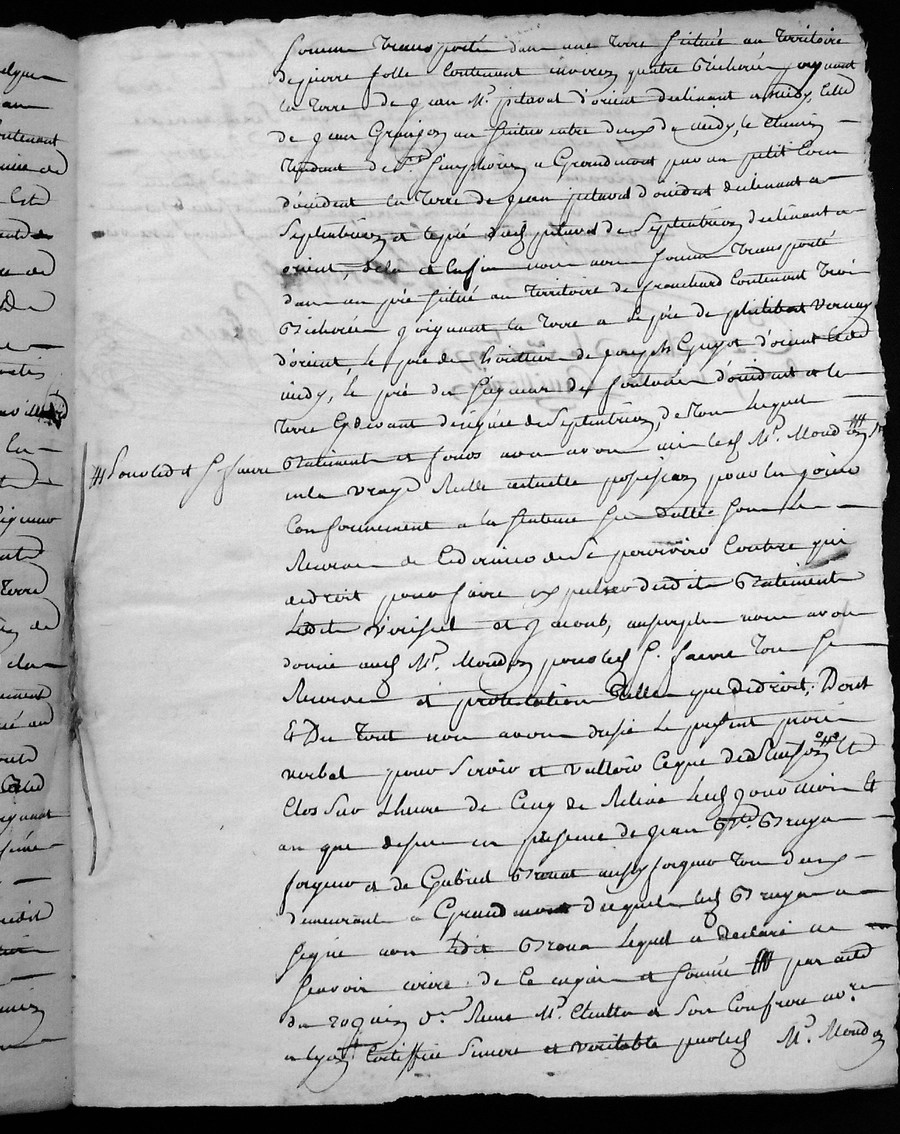 sommes transportés dans une terre située au territoire
de pierre folle contenant environ quatre bicherées joignant
la terre de jean M. pitaval d'orient declinant a midy, celle
de jean Granjon au sentier entre deux de midy, le chemin
tendant de St. Simphorien a Grandmont par un petit coin
d'occident la terre de jean pitaval d'occident declinant a
Septentrion et le pré dud. pitaval de Septentrion declinant a
orient, de la et enfin nous nous sommes transporté
dans un pré situé au territoire de contenant trois
bicherées joignant la terre et le pré de philibert Vernay
d'orient, le pré des héritiers de joseph Guyot d'orient et de
midy, le pré du seigneur de d'occident et la
terre cydevant designée de Septentrion, de tous lesquels
batiments et fonds nous avons mis led. M. Mond
en la vraye réelle actuelle possession pour en jouir
Conformement a la Sentence sus datée sous la
Reserve de ce dernier de se pourvoir contre qui
de droit pour faire expulser desdits batiments
ledit et, au surplus nous avons
donné aud. M. Mond pour led. S. faure tous ses
Reserves et protestations telles que de droit, Dont
Et Du Tout nous avons dressé le present procès
verbal pour servir et valloir ce que de Raison Et
Clos Sur Lheure de Cinq de Relevé lesd. jour mois Et
an que dessus en presence de jean Bte. Bruyas
et de Gabriel Brouat aussy tous deux
demeurant a Grandmont desquels led. Bruyas a
signé non ledit Broua lequel a declaré ne
scavoir ecrire de ce enquis et sommé par acte
du Reçu M. et Son Confrere nore.
a lyon Certiffié Sincere et veritable par led. M. Mond